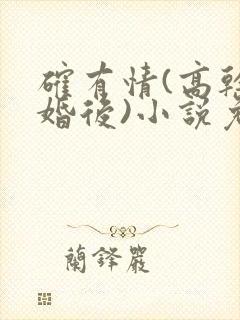 確有情(高幹
婚後)小說免
蘭鋒嚴